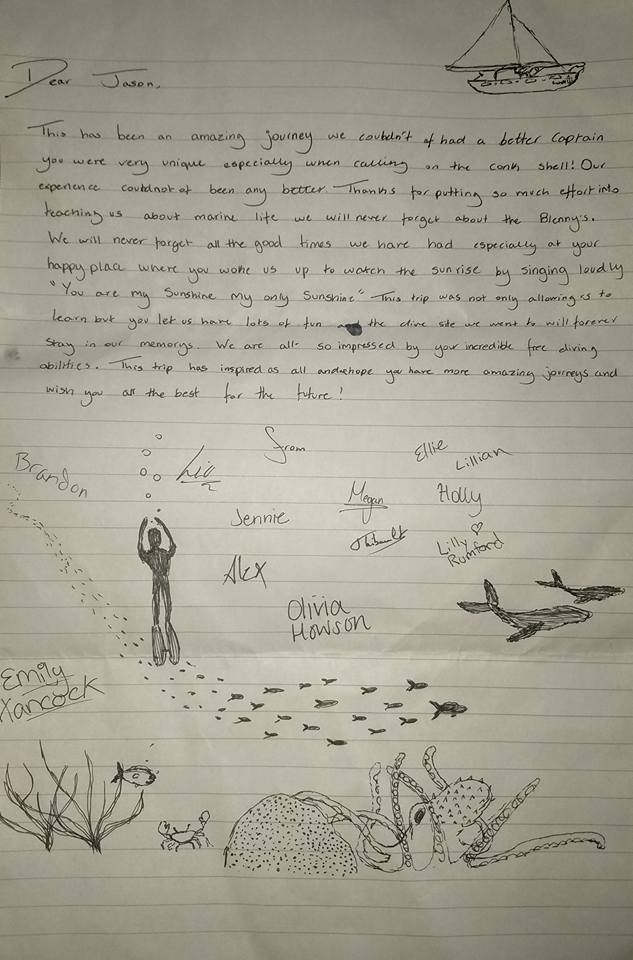 Dear Jason,
This has been an amazing journey we couldn't of had a better Captain
you were very unique especially when calling on the conk shell! Our
experience couldnot of been any better. Thanks for putting so much effort into
teaching us about marine life we will never forget about the Blenny's.
We will never forget all the good times we have had especially at your
happy place where you woke us up to watch the sunrise by singing loudly
"You are my Sunshine my only Sunshine" This trip was not only allowing us to
learn but you let us have lots of fun the dive site we went to will forever
stay in our memorys. We are all so impressed by your incredible free diving
abilities. This trip has inspired us all and hope you have more amazing journeys and
wish you all the best for the future!
From
Ellie
Lillian
Brandon
Megan
Holly
Jennie
Thibault
Lilly
Rumford
Alex
Olivia
Howson
Emily